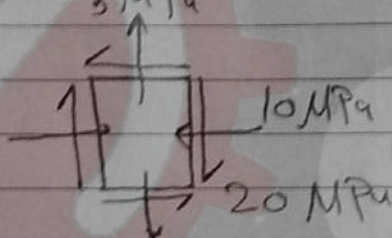 10 MPa
20 MPa